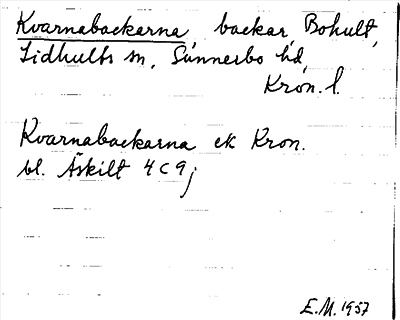 Kvarnabackarna backar, Bohult,
Lidhults sn, Sunnerbo hd,
Kron. l.
Kvarnabackarna ek Kron.
bl. Åskilt 4 C 9j
E.M. 1957